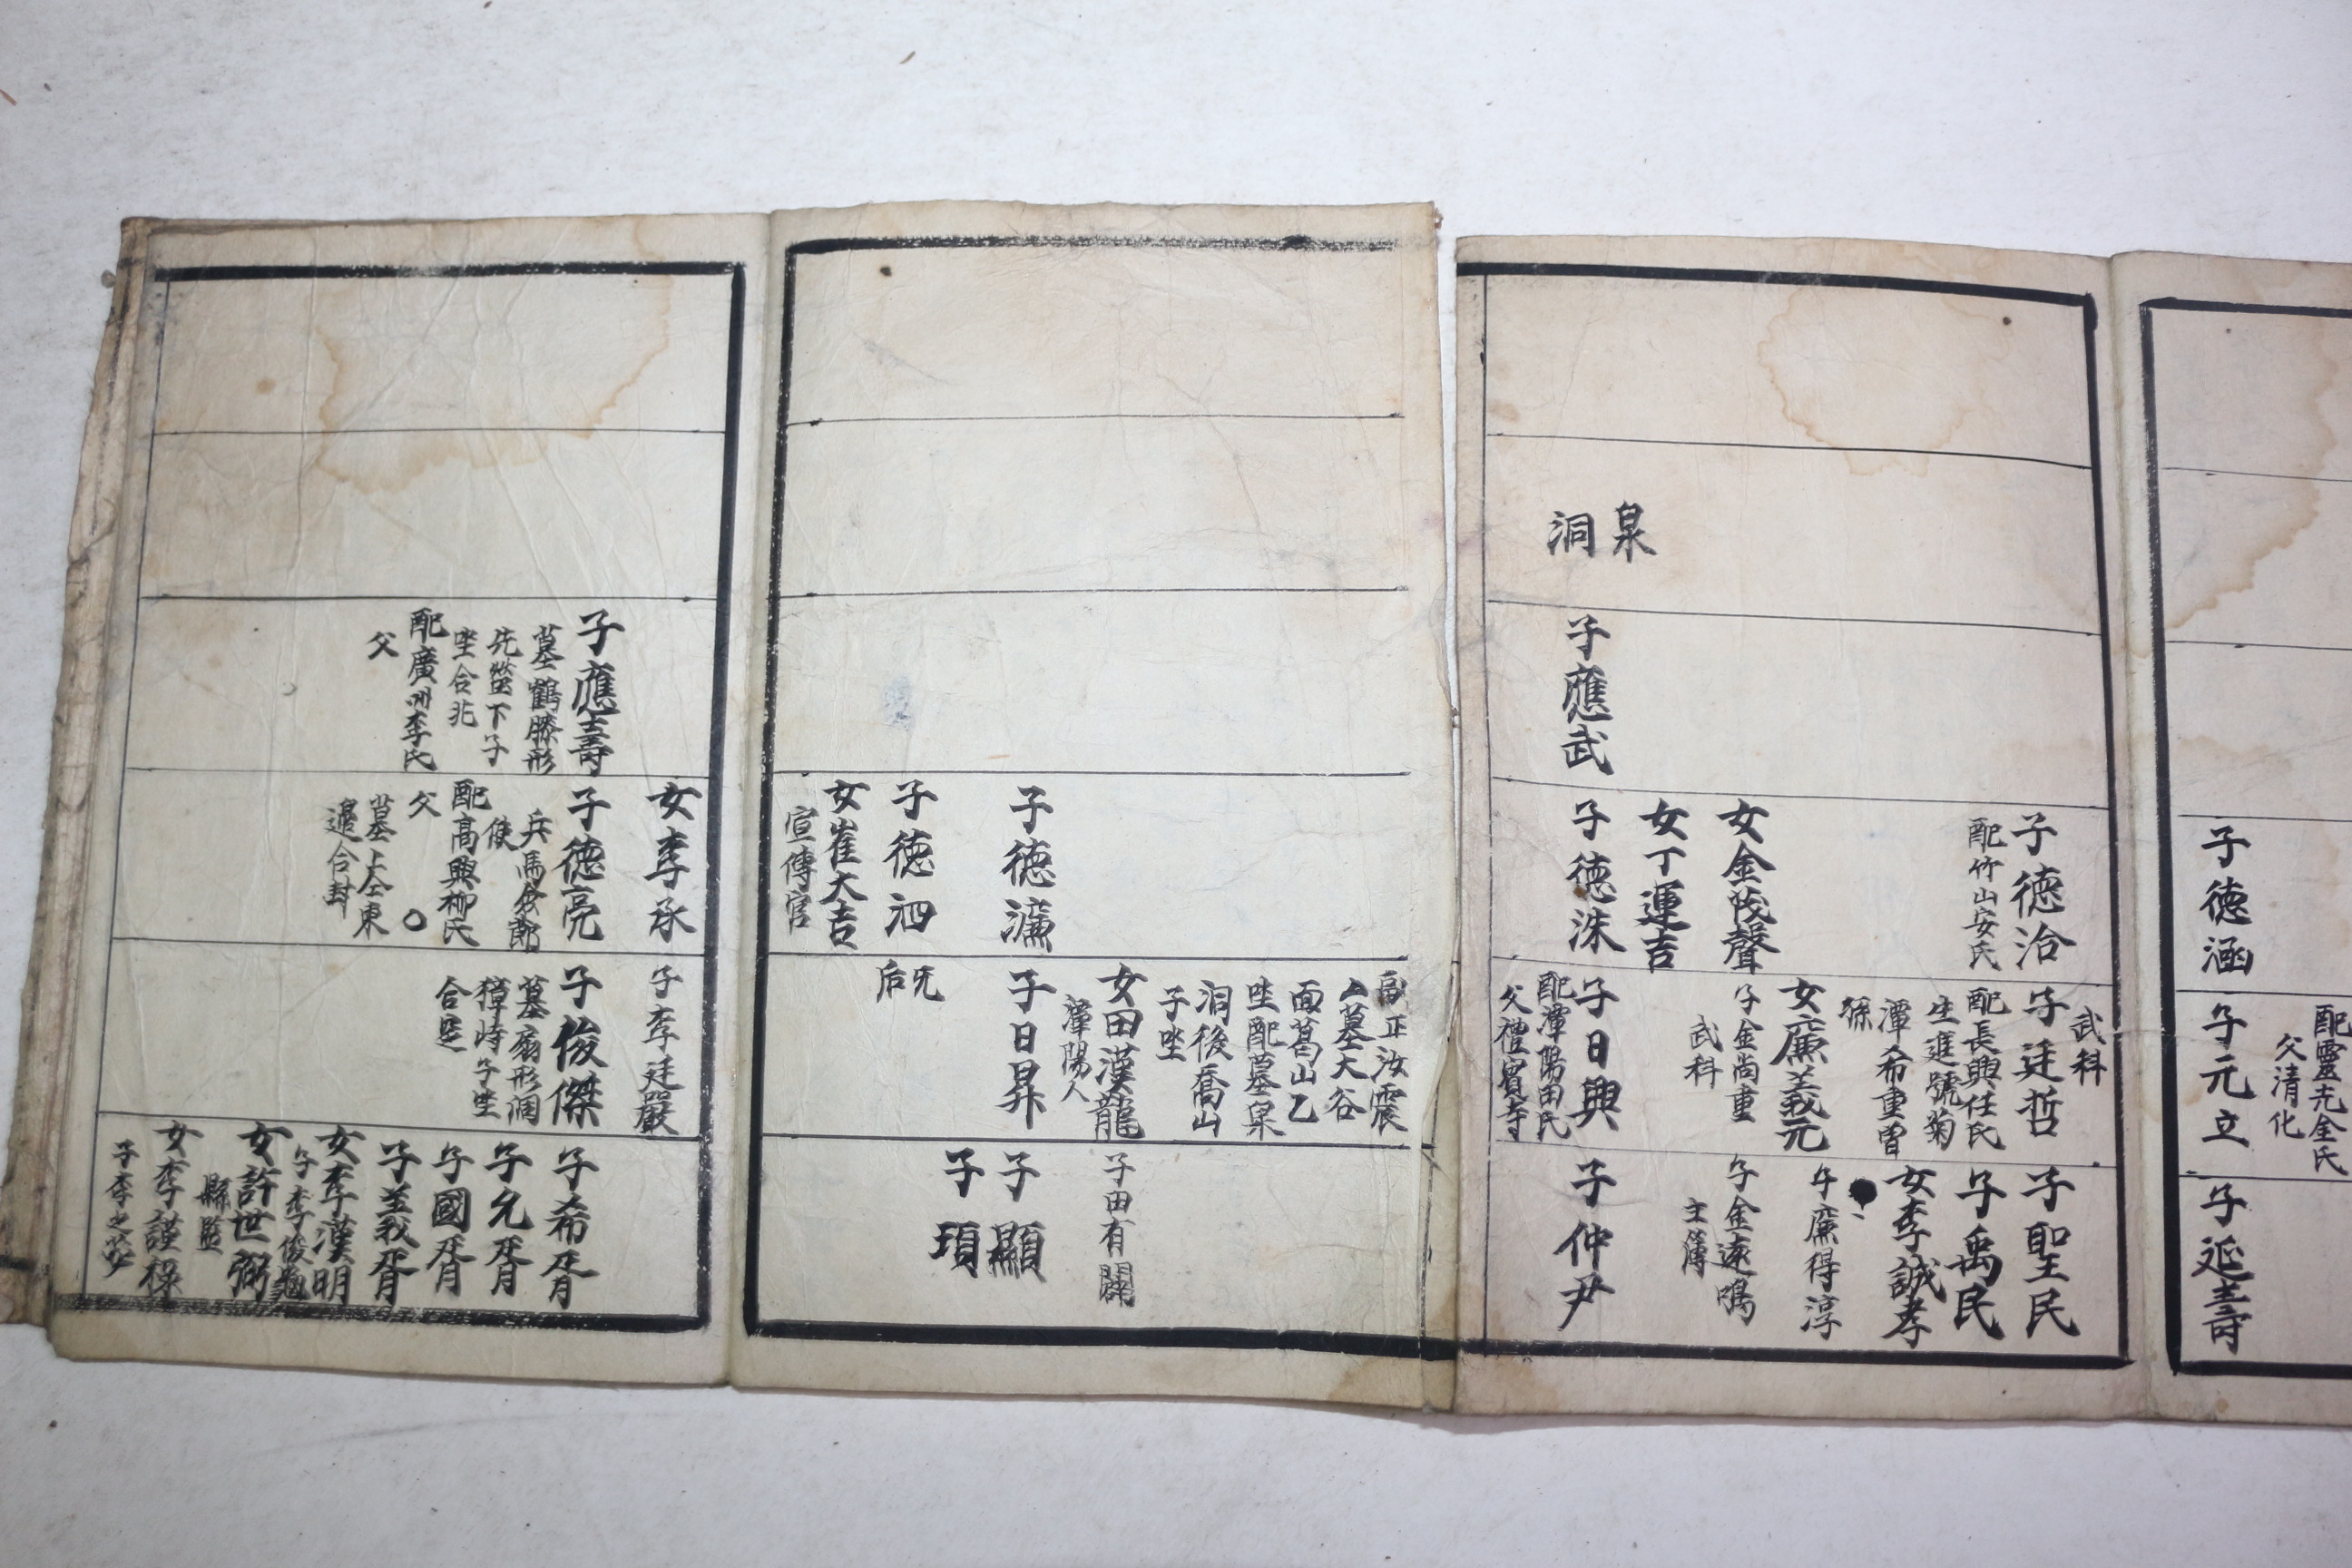 子德涵
配靈光金氏
父清化
子元立
子延壽
泉
洞
子應武
子德治
配竹山安氏
女金陵聲
女丁運吉
子德洙
武科
子廷哲
配長興任氏
生進號菊
潭希重曾
孫
女廉義元
子金尚重
武科
子日興
配潭陽田氏
父禮賓寺
子聖民
子禹民
女李誠孝
子廉得淳
子金遠鳴
主簿
子仲尹
子德濂
子德泗
女崔大吉
宣傳官
副正汝震
墓大谷
面葛山乙
坐配墓泉
洞後喬山
子坐
女田漢龍
潭陽人
子日昇
无
后
子田有闢
子顯
子頊
子應壽
墓鶴膝形
先塋下子
坐合兆
配廣州李氏
父
女李承
子德亮
兵馬僉節
使
配高興柳氏
父
墓上仝東
邊合封
子李廷嚴
子俊傑
墓扇形洞
獐峙子坐
合窆
子希胥
子允胥
子國胥
子義胥
女李漢明
子李俊
女許世弼
縣監
女李謹祿
子李之